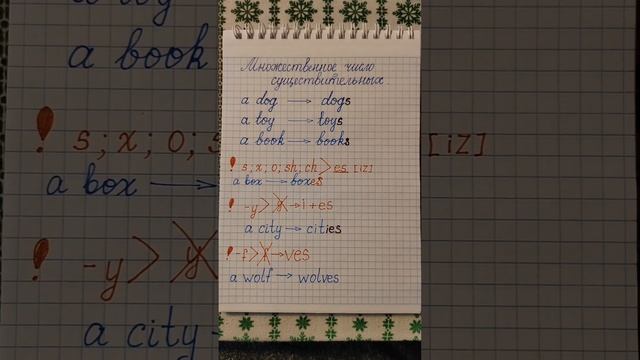 Множественное число
существительных.
a dog → dogs
a toy → toys
a book → books
! s; x; o; sh; ch > es [iz]
a box → boxes
! -y > y → i+es
a city → cities
! -f > f → ves
a wolf → wolves